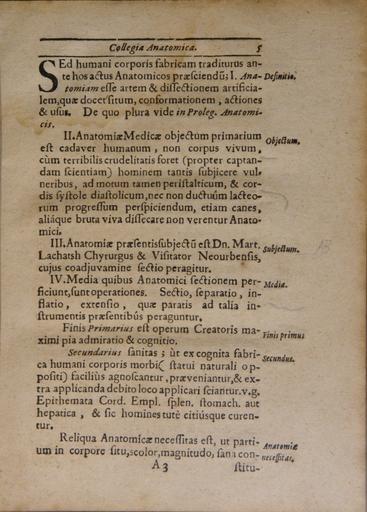 Collegia Anatomica. 5
SEd humani corporis fabricam traditurus an-
te hos actus Anatomicos præsciendũ; I. Ana-
tomiam esse artem & dissectionem artificia-
lem, quæ docet situm, conformationem, actiones
& usus. De quo plura vide in Proleg. Anatomi-
cis.
Definitio.
II. Anatomiæ Medicæ objectum primarium
est cadaver humanum, non corpus vivum,
cùm terribilis crudelitatis foret (propter captan-
dam scientiam) hominem tantis subjicere vul-
neribus, ad motum tamen peristalticum, & cor-
dis systole diastolicum, nec non ductuúm lacteo-
rum progressum perspiciendum, etiam canes,
aliáque bruta viva dissecare non verentur Anato-
mici.
Objectum.
III. Anatomiæ præsentis subjectũ est Dn. Mart.
Lachatsh Chyrurgus & Visitator Neourbensis,
cujus coadjuvamine sectio peragitur.
Subjectum.
IV. Media quibus Anatomici sectionem per-
ficiunt, sunt operationes. Sectio, separatio, in-
flatio, extensio, quæ paratis ad talia in-
strumentis præsentibûs peraguntur.
Media.
Finis Primarius est operum Creatoris ma-
ximi pia admiratio & cognitio.
Finis primus
Secundarius sanitas; ùt ex cognita fabri-
ca humani corporis morbi (statui naturali op-
positi) faciliùs agnoscantur, præveniantur, & ex-
tra applicanda debito loco applicari sciantur. v.g.
Epithemata Cord. Empl. splen. stomach. aut
hepatica, & sic homines tutè citiúsque curen-
tur.
Secundus.
Reliqua Anatomicæ necessitas est, ut parti-
um in corpore situ, color, magnitudo, sana con-
Anatomiæ
necessitas.
A 3 stitu-